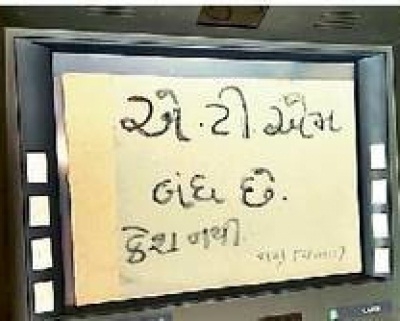 એ.ટી.એમ
બંધ છે.
કેશ નથી.